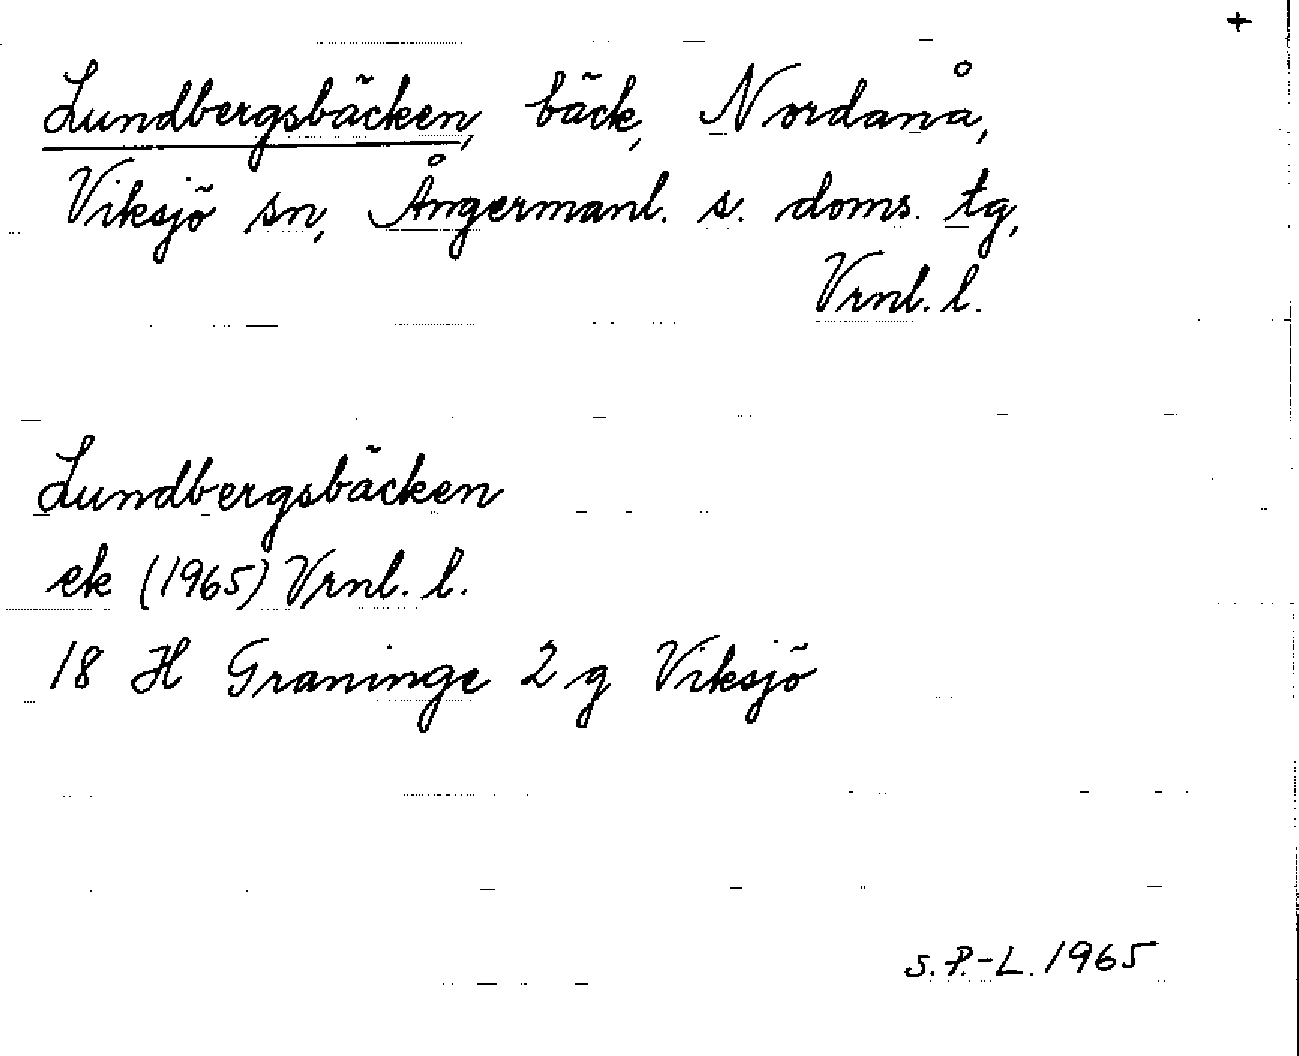 +
Lundbergsbäcken, bäck, Nordanå,
Viksjö sn, Ångermanl. s. doms. tg,
Vrnl. l.
Lundbergsbäcken
ek (1965) Vrnl. l.
18 H Graninge 2 g Viksjö
S.P.-L. 1965